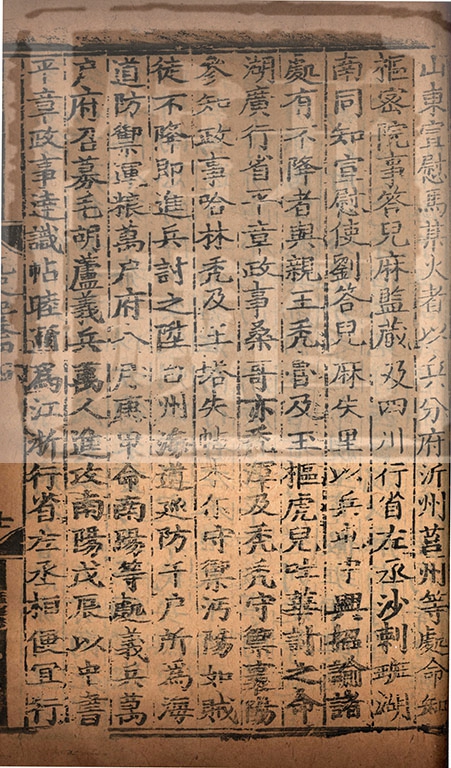 山東宣慰馬某火者以兵分府沂州莒州等處命知
樞密院事答兒麻監藏及四川行省左丞沙剌班湖
南同知宣慰使劉答兒麻失里以兵屯中興招諭諸
處有不降者與親王禿魯及玉樞虎兒吐華討之命
湖廣行省平章政事桑哥亦禿渾及禿禿守禦襄陽
參知政事哈林禿及王塔失帖木守禦沔陽如賊
徒不降即進兵討之陞台州海道巡防千戶所為海
道防禦運糧萬戶府八月庚甲命南陽等處義兵萬
戶府召募毛胡蘆義兵萬人進攻南陽戊辰以中書
平章政事達識帖睦邇為江浙行省左丞相便宜行